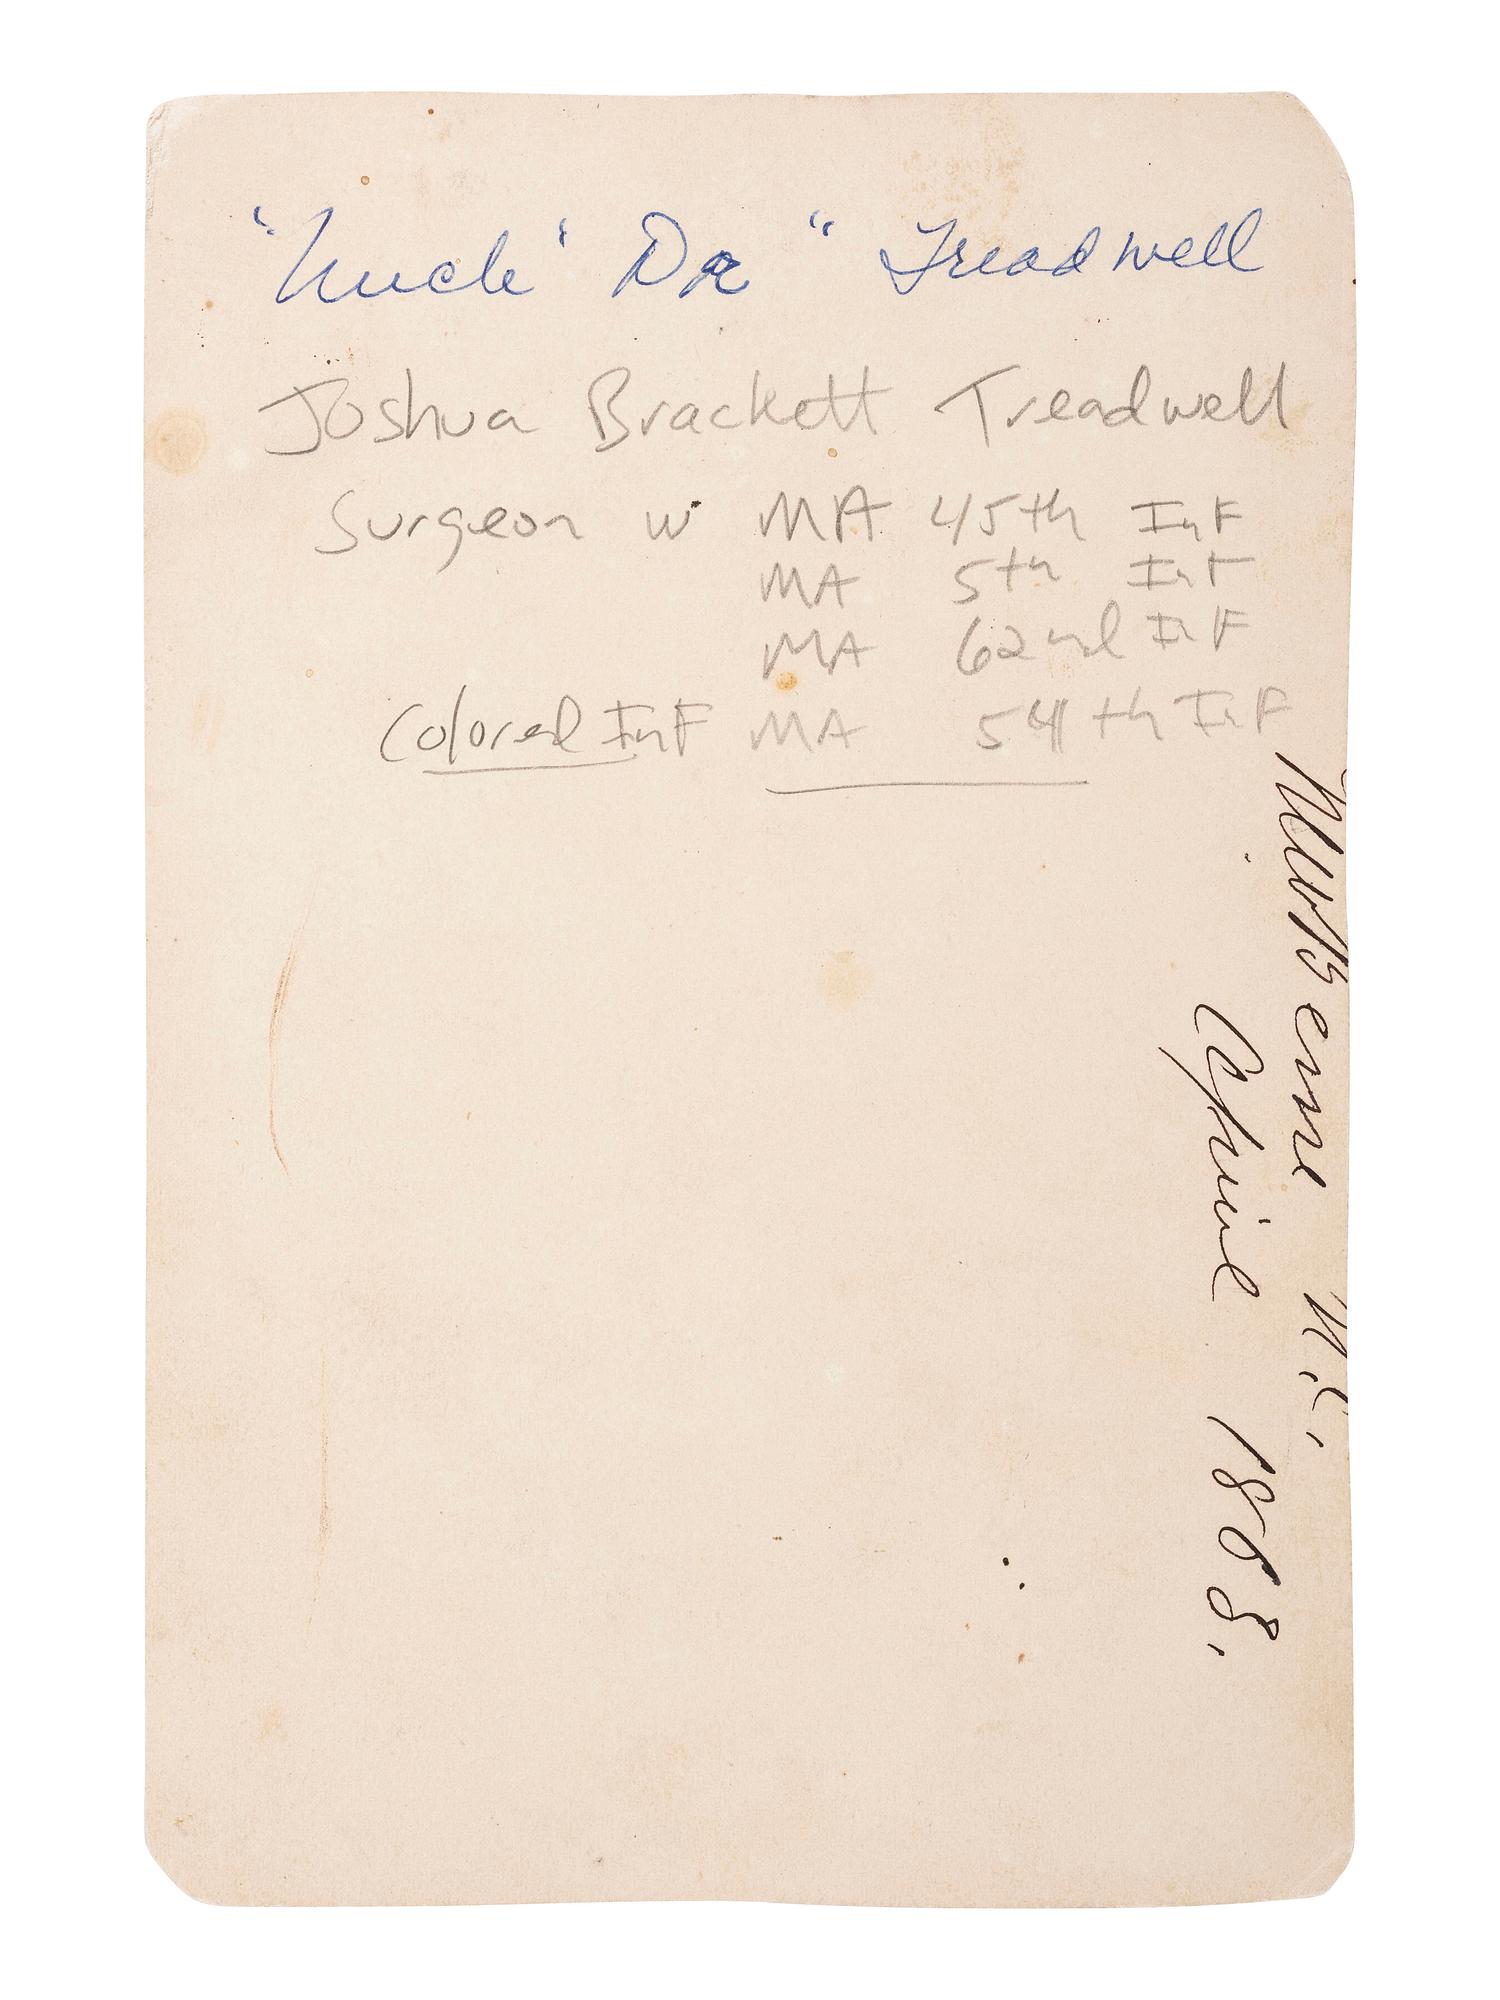 "Uncle' Dr " Treadwell
Joshua Brackett Treadwell
Surgeon w MA 45th Inf
MA 5th Inf
MA 62nd Inf
Colored Inf MA 54th Inf
Berne N.C.
April 1863.